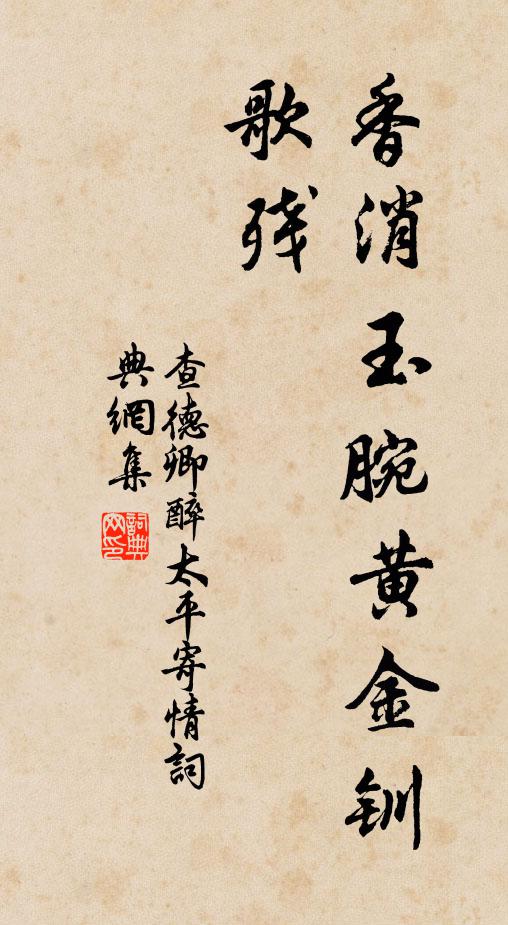 香消玉腕黄金釧
歌残
查德卿醉太平寄情詞
典網集
詞典網印